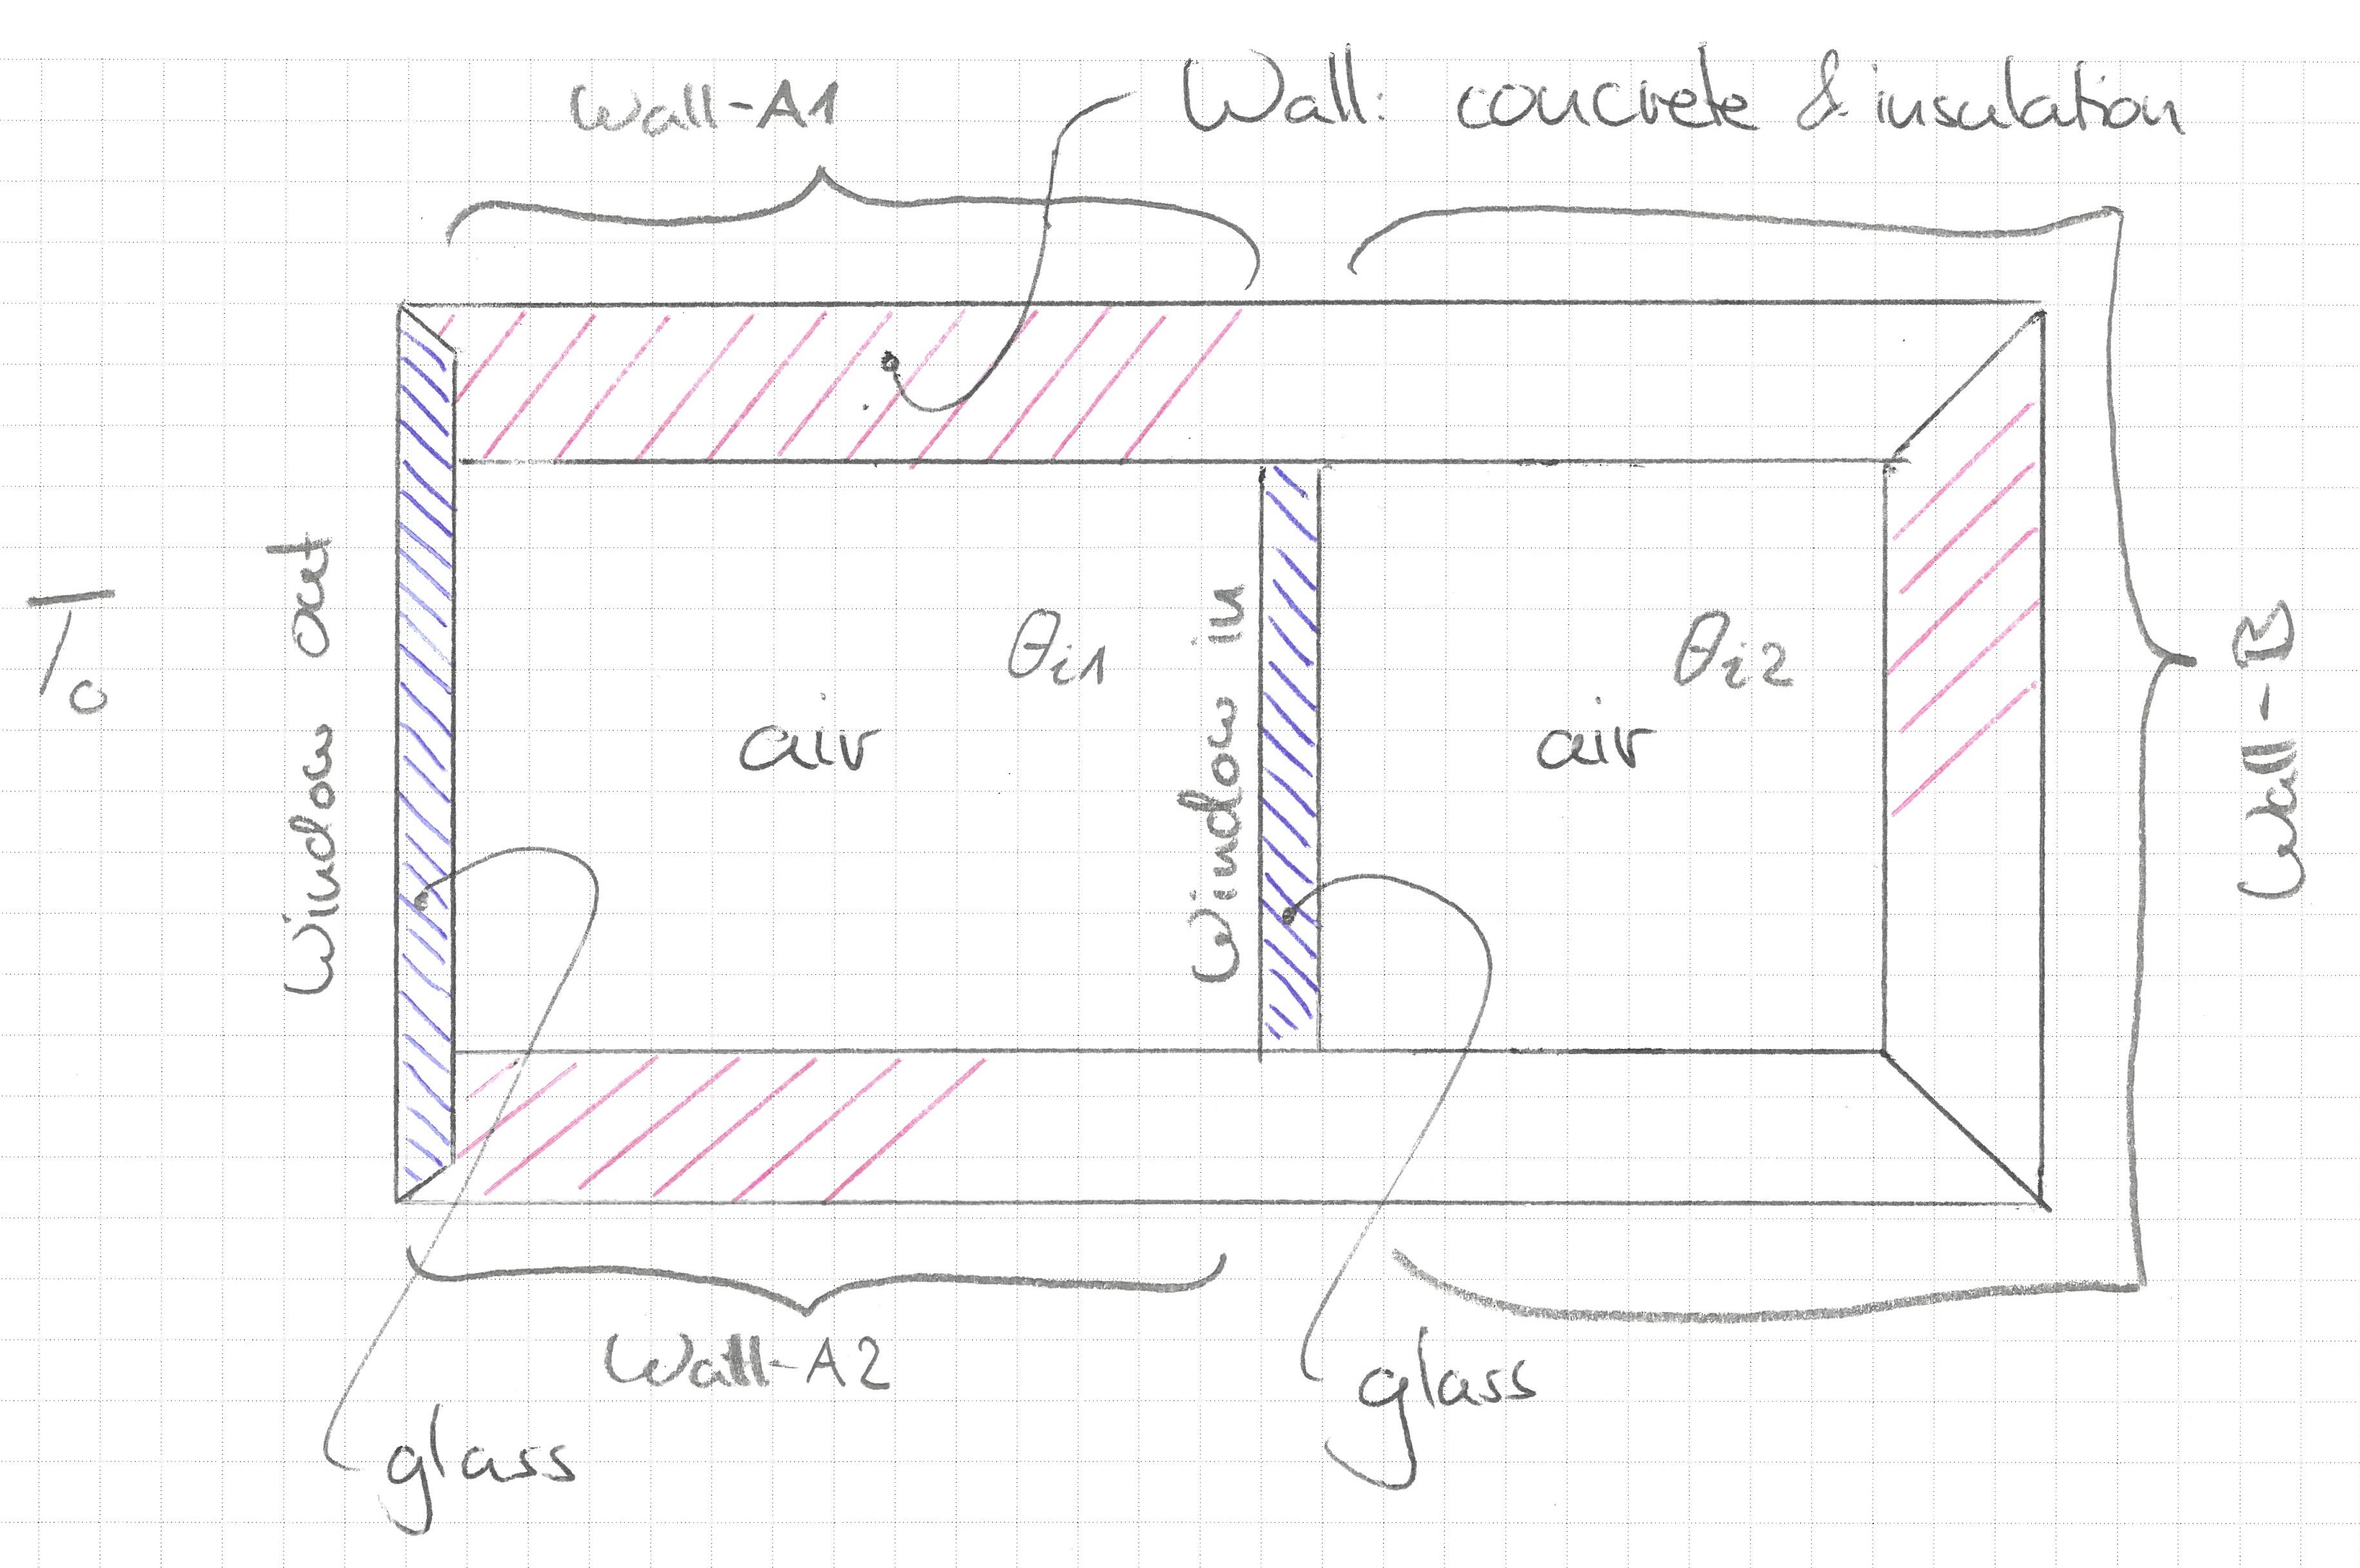 Wall-A1
Wall: concrete & insulation
T₀
Window out
θi1
air
Window in
θi2
air
Wall-B
Wall-A2
glass
glass